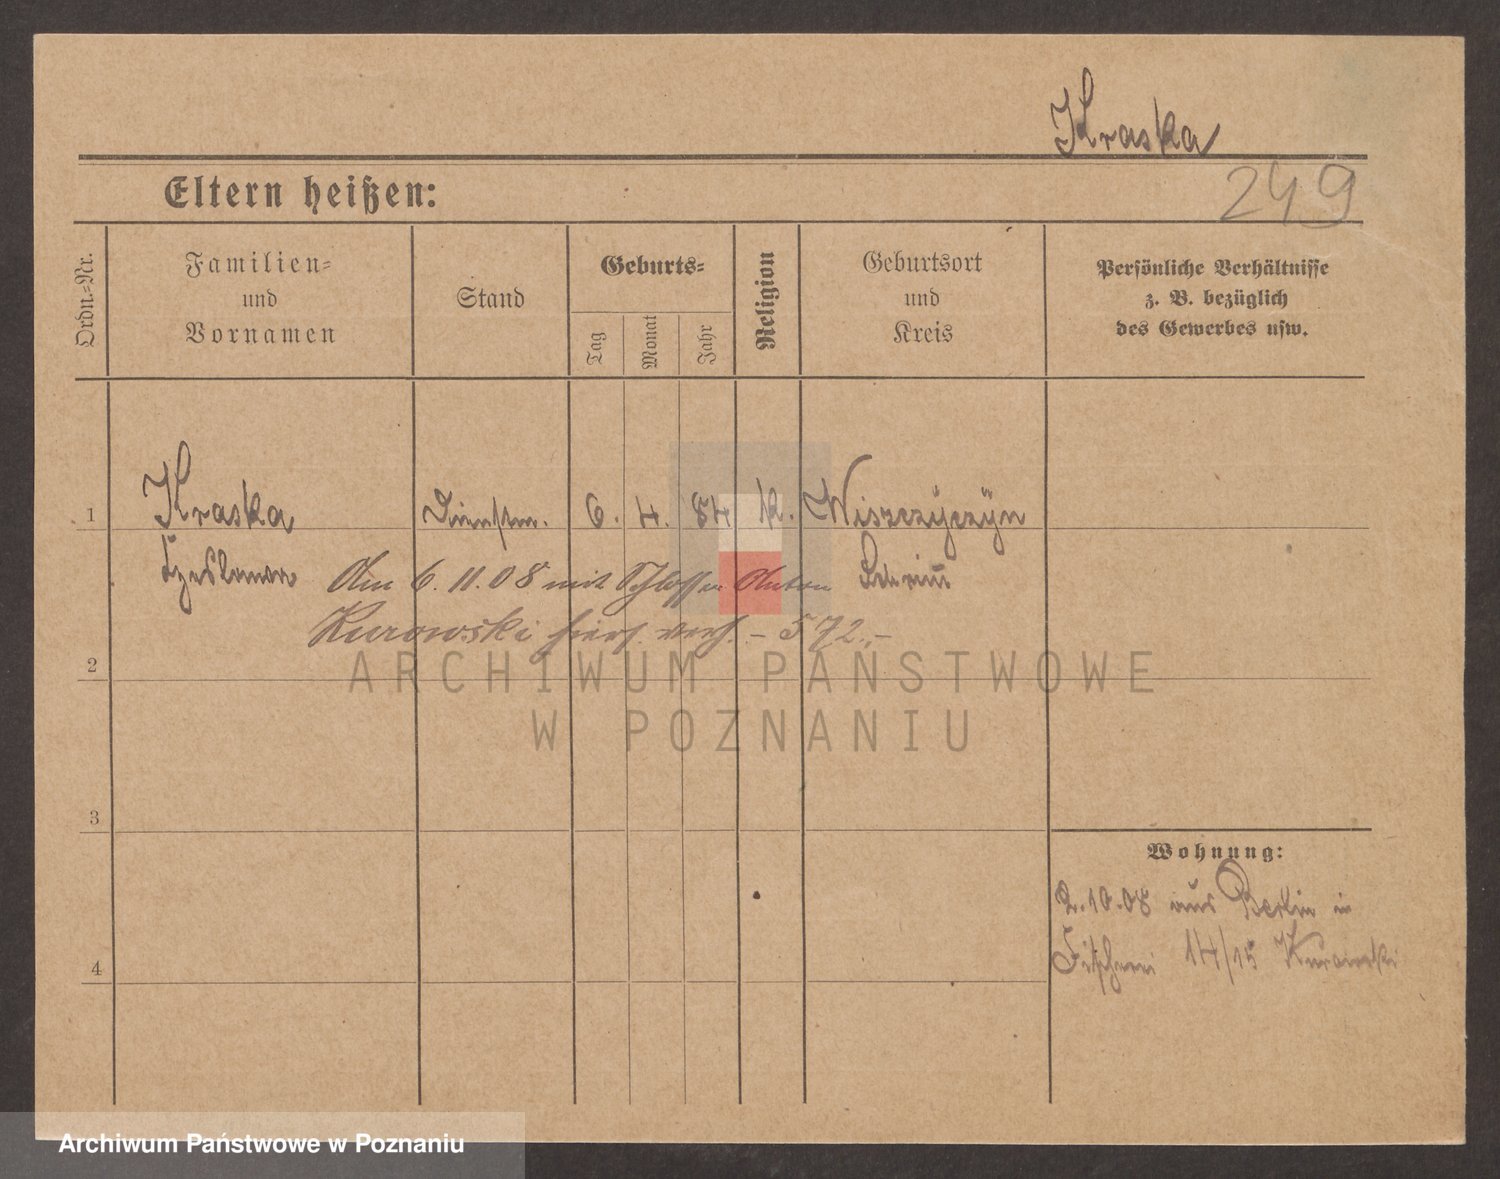 Kraska
249
Eltern heißen:
Ordn.-Nr.
Familien-
und
Vornamen
Stand
Geburts-
Tag
Monat
Jahr
Religion
Geburtsort
und
Kreis
Persönliche Verhältnisse
z. B. bezüglich
des Gewerbes usw.
1
Kraska
6. 4. 84 k. Wiszczyczyn
Am 6.11.08 mit Schlosser Anton
Kurowski hiers. verh. - 572.-
2
3
4
Wohnung:
2.10.08 aus Berlin in
Fischerei 14/15 Kurowski
ARCHIWUM PAŃSTWOWE
W POZNANIU
Archiwum Państwowe w Poznaniu